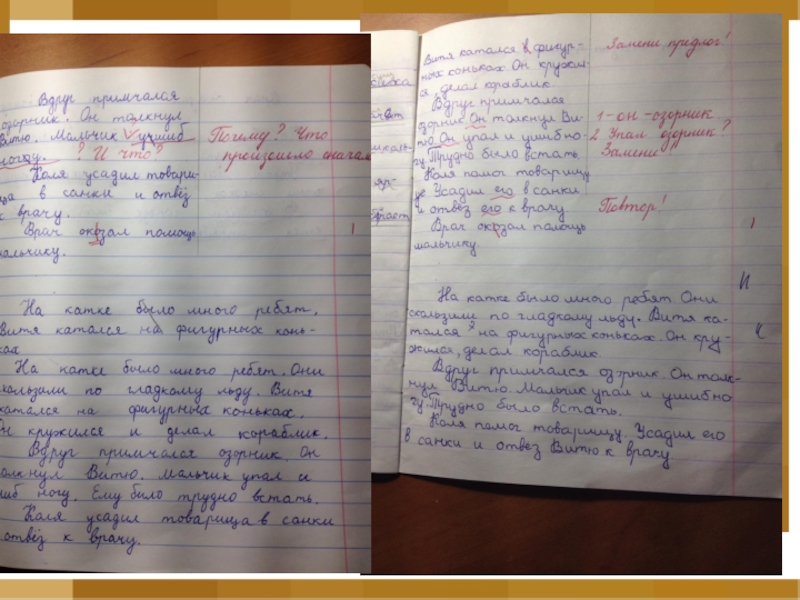 Вдруг примчался
озорник. Он толкнул
Витю. Мальчик ушиб
ногу. ? И что?
Почему? Что
произошло сначала
Коля усадил товари-
ща в санки и отвёз
к врачу.
Врач оказал помощь
мальчику.
1
На катке было много ребят.
Витя катался на фигурных конь-
ках
На катке было много ребят. Они
скользили по гладкому льду. Витя
катался на фигурных коньках.
Он кружился и делал кораблик.
Вдруг примчался озорник. Он
толкнул Витю. Мальчик упал и
ушиб ногу. Ему было трудно встать.
Коля усадил товарища в санки
и отвёз к врачу.
Витя катался в фигур-
ных коньках. Он кружил-
ся делал кораблик.
Вдруг примчался
озорник Он толкнул Ви-
тю Он упал и ушиб но-
гу. Трудно было встать
Коля помог товарищу
Усадил его в санки
и отвёз его к врачу
Врач оказал палощь
мальчику.
Замени предлог!
1-он-озорник
2 Упал озорник?
Замени
Повтор!
1
И
На катке было много ребят Они
скользили по гладкому льду. Витя ка-
тался на фигурных коньках. Он кру-
жился, делал кораблик.
Вдруг примчался озрник. Он толк-
нул Витю. Малчик упал и ушиб но
гу. Трудно было встать.
Коля помог товарищу. Усадил его
в санки и отвез Витю к врачу